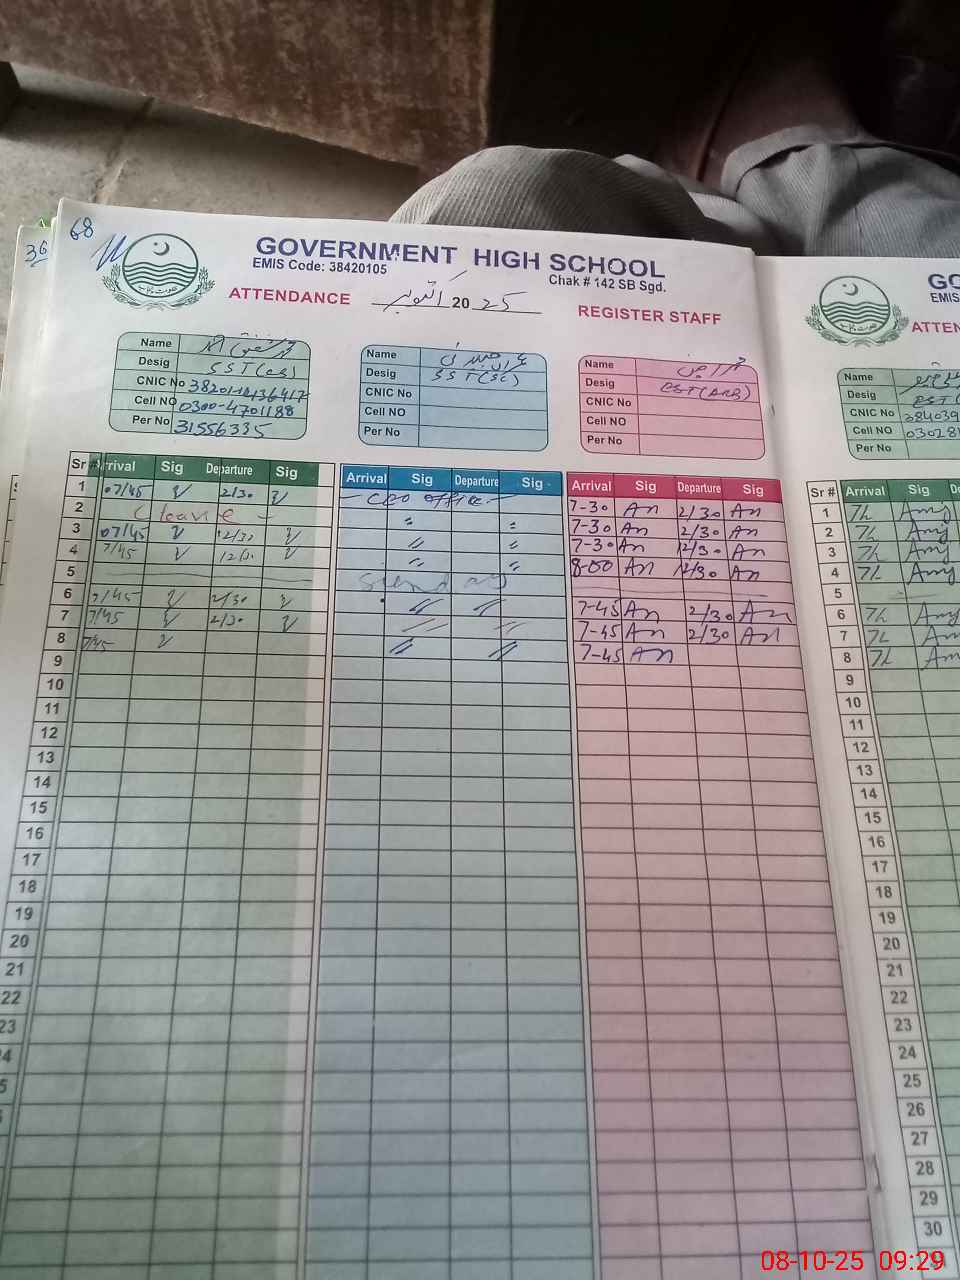 68
36
GOVERNMENT HIGH SCHOOL
EMIS Code: 38420105
Chak # 142 SB Sgd.
ATTENDANCE اکتوبر 2025 REGISTER STAFF
Name
Desig SST(CS)
CNIC No
Cell NO 0300-4701188
Per No 31556335
Name
Desig SST(SC)
CNIC No
Cell NO
Per No
Name
Desig EST(ARB)
CNIC No
Cell NO
Per No
Sr # Arrival Sig Departure Sig Arrival Sig Departure Sig Arrival Sig Departure Sig
1 07/45 2/30 CEO office 7-30 An 2/30 An
2 C leave 〃 〃 7-30 An 2/30 An
3 07/45 12/30 〃 〃 7-30 An 12/30 An
4 7/45 12/30 〃 〃 8-00 An 12/30 An
5 Sunday
6 7/45 2/30 〃 〃 7-45 An 2/30 An
7 7/45 2/30 〃 〃 7-45 An 2/30 An
8 7/45 〃 〃 7-45 An
9
10
11
12
13
14
15
16
17
18
19
20
21
22
23
24
GO
EMIS
ATTEN
Name
Desig
CNIC No 384039
Cell NO 030281
Per No
Sr # Arrival Sig De
1
2
3
4
5
6
7
8
9
10
11
12
13
14
15
16
17
18
19
20
21
22
23
24
25
26
27
28
29
30
08-10-25 09:29